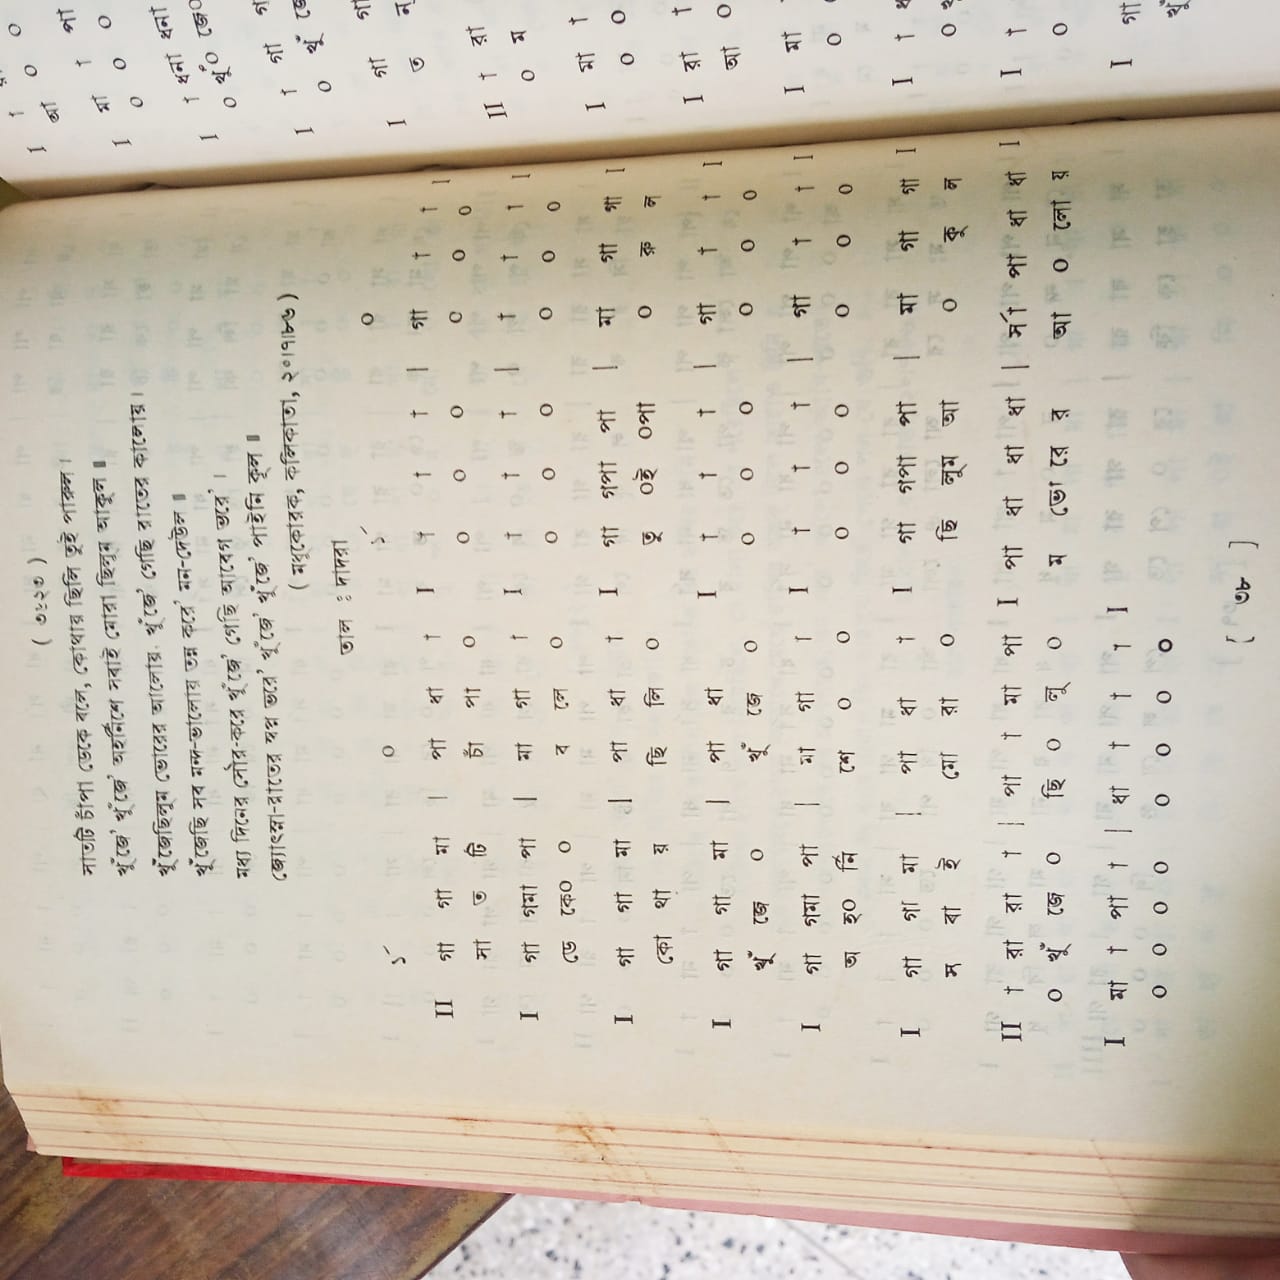 ( ৩২২৩ )
সাতটি চাঁপা ডেকে বলে, কোথায় ছিলি তুই পারুল।
খুঁজে' খুঁজে' অহর্নিশে সবাই মোরা ছিলুম আকুল॥
খুঁজেছিলুম ভোরের আলোয়, খুঁজে' গেছি রাতের কালোয়।
খুঁজেছি সব মন্দ-ভালোয় তন্ন করে' মন-দেউল॥
মধ্য দিনের সৌর-করে খুঁজে' গেছি আবেগ ভরে'।
জ্যোৎস্না-রাতের স্বপ্ন ভরে' খুঁজে' খুঁজে' পাইনি কূল॥
( মধুকোরক, কলিকাতা, ২০।৭।৮৬ )
তাল : দাদরা
১´ ০ ১´ ০
II গা গা মা | পা ধা া I া া া | গা া া I
সা ত টি চাঁ পা ০ ০ ০ ০ ০ ০ ০
I গা গমা পা | মা গা া I া া া | া া া I
ডে কে০ ০ ব লে ০ ০ ০ ০ ০ ০ ০
I গা গা মা | পা ধা া I গা গপা পা | মা গা গা I
কো থা য় ছি লি ০ তু ০ই ০পা ০ রু ল
I গা গা মা | পা ধা া I া া া | গা া া I
খুঁ জে ০ খুঁ জে ০ ০ ০ ০ ০ ০ ০
I গা গমা পা | মা গা া I া া া | গা া া I
অ হ০ র্নি শে ০ ০ ০ ০ ০ ০ ০ ০
I গা গা মা | পা ধা া I গা গপা পা | মা গা গা I
স বা ই মো রা ০ ছি লুম আ ০ কু ল
II া রা রা া | পা া মা পা I পা ধা ধা ধা | র্সা পা ধা ধা I
০ খুঁ জে ০ ছি ০ লু ০ ম ভো রে র আ ০ লো য়
I মা া পা া | ধা া া া I
০ ০ ০ ০ ০ ০ ০ ০
[ ৩৮ ]